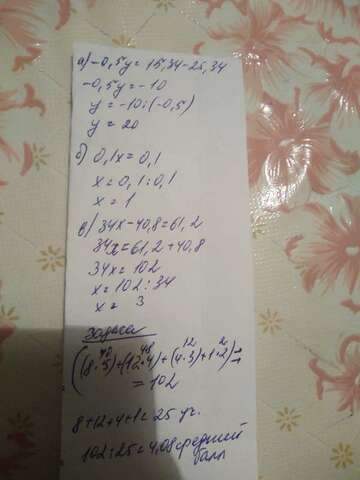 а) -0,5y = 15,34-25,34
-0,5y = -10
y = -10:(-0,5)
y = 20
б) 0,1x = 0,1
x = 0,1:0,1
x = 1
в) 34x-40,8=61,2
34x=61,2+40,8
34x = 102
x = 102:34
x = 3
задача
40 48 12 2
((8·5)+(12·4)+(4·3)+1·2) =
= 102
8+12+4+1=25 уч.
102:25=4,08 средний
балл